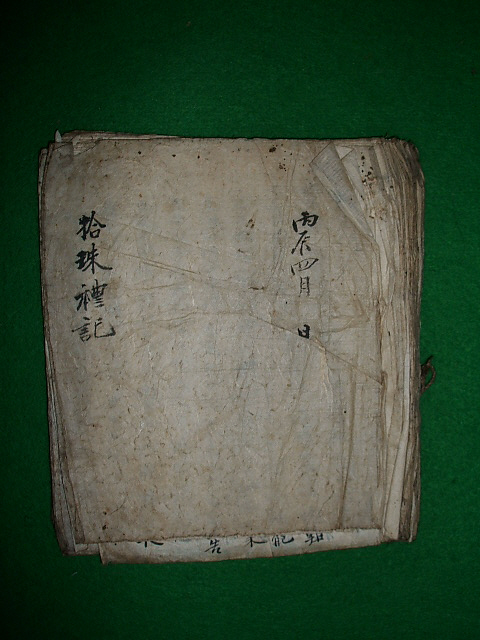 丙辰四月 日
拾珠禮記
告